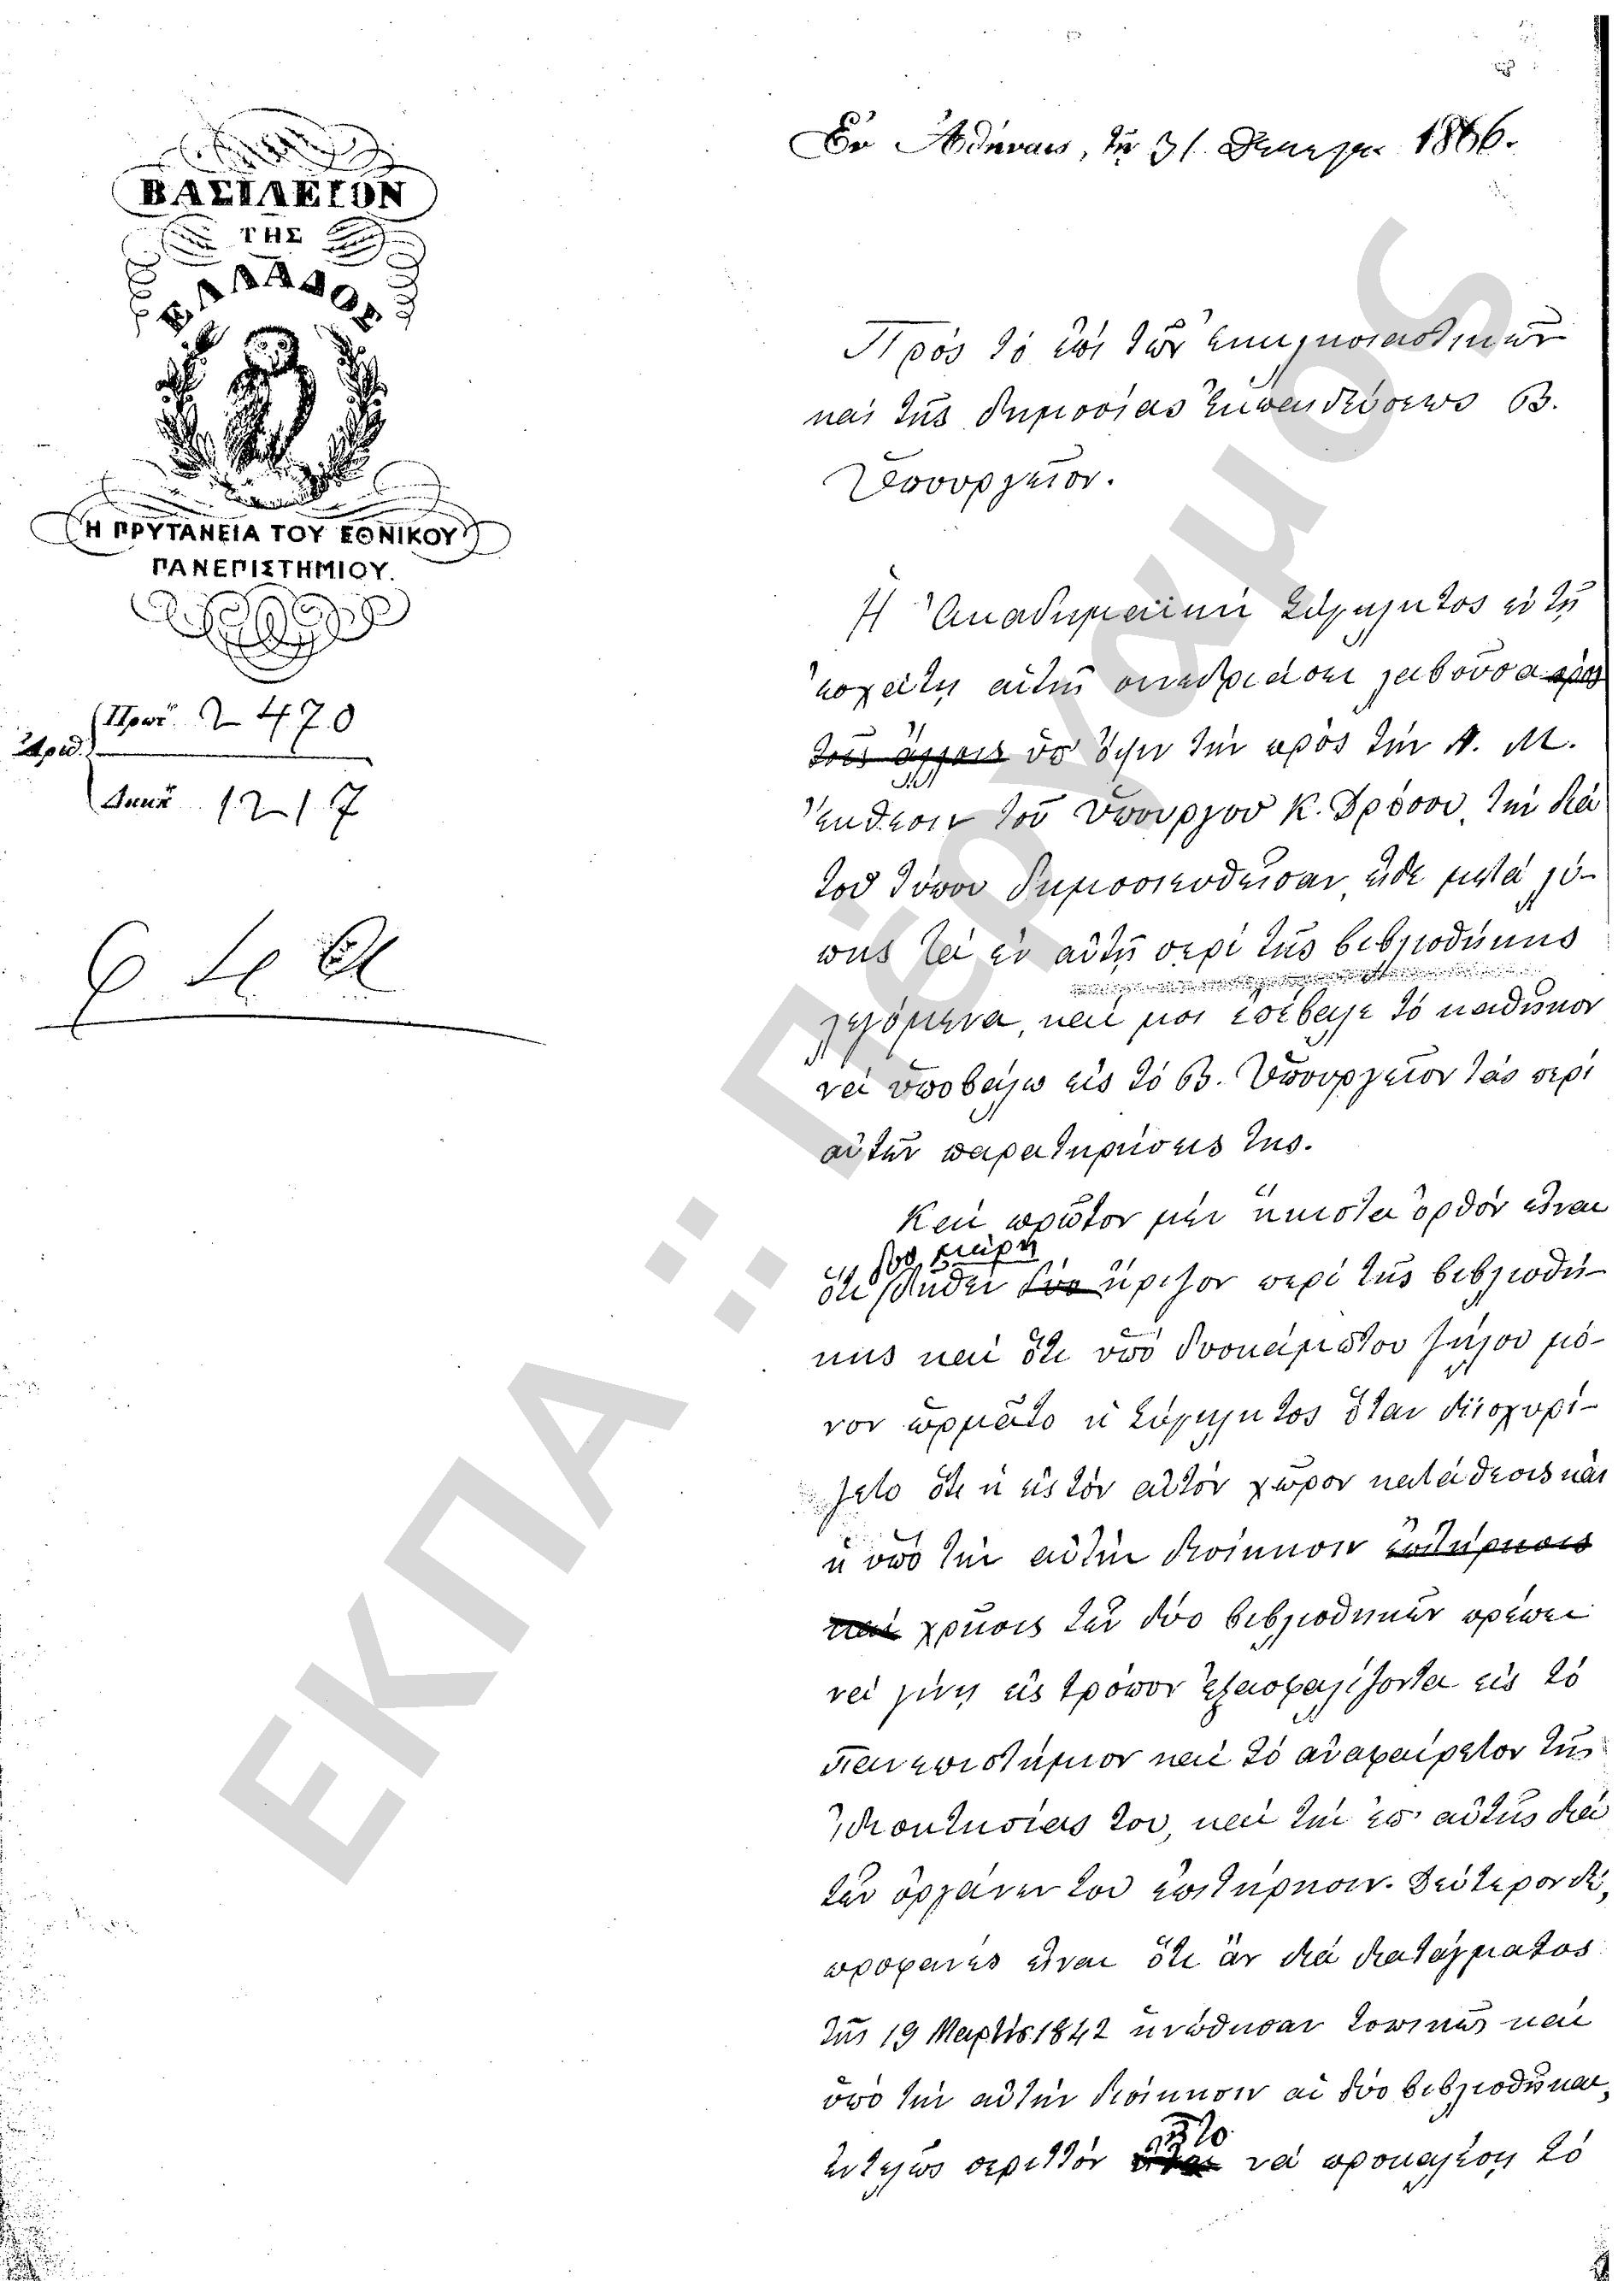 ΒΑΣΙΛΕΙΟΝ
ΤΗΣ
ΕΛΛΑΔΟΣ
Η ΠΡΥΤΑΝΕΙΑ ΤΟΥ ΕΘΝΙΚΟΥ
ΠΑΝΕΠΙΣΤΗΜΙΟΥ.
Ἀριθ.
Πρωτ. 2470
Διεκπ. 1217
Ἐν Ἀθήναις, τῇ 31. 1866.
Πρὸς τὸ ἐπὶ τῶν ἐκκλησιαστικῶν
καὶ τῆς δημοσίας ἐκπαιδεύσεως Β.
Ὑπουργεῖον.
Ἡ Ἀκαδημαϊκὴ Σύγκλητος ἐν τῇ
ἐσχάτῃ αὐτῆς συνεδριάσει λαβοῦσα πρὸς
τοῖς ἄλλοις ὑπ' ὄψιν τὴν πρὸς τὴν Α. Μ.
ἔκθεσιν τοῦ Ὑπουργοῦ Κ. Δρόσου, τὴν διὰ
τοῦ τύπου δημοσιευθεῖσαν, εἶδε μετὰ λύ-
πης τὰ ἐν αὐτῇ περὶ τῆς βιβλιοθήκης
λεγόμενα, καὶ μοὶ ἐπέβαλε τὸ καθῆκον
νὰ ὑποβάλω εἰς τὸ Β. Ὑπουργεῖον τὰς περὶ
αὐτῶν παρατηρήσεις της.
Καὶ πρῶτον μὲν ἥκιστα ὀρθὸν εἶναι
δύο μέρη
ὅτι δῆθεν δύο ἤριζον περὶ τῆς βιβλιοθή-
κης καὶ ὅτι ὑπὸ δυσκάμπτου ζήλου μό-
νον ὡρμᾶτο ἡ Σύγκλητος ὅταν διϊσχυρί-
ζετο ὅτι ἡ εἰς τὸν αὐτὸν χῶρον κατάθεσις καὶ
ἡ ὑπὸ τὴν αὐτὴν διοίκησιν ἐπιτήρησις
καὶ χρῆσις τῶν δύο βιβλιοθηκῶν πρέπει
νὰ γίνῃ εἰς τρόπον ἐξασφαλίζοντα εἰς τὸ
Πανεπιστήμιον καὶ τὸ ἀναφαίρετον τῆς
ἰδιοκτησίας του, καὶ τὴν ἐπ' αὐτῆς διὰ
τῶν ὀργάνων του ἐπιτήρησιν. Δεύτερον δέ,
προφανὲς εἶναι ὅτι ἂν διὰ διατάγματος
τῆς 19 Μαρτίου 1842 ἡνώθησαν τοπικῶς καὶ
ὑπὸ τὴν αὐτὴν διοίκησιν αἱ δύο βιβλιοθῆκαι,
ἦτο
ἐντελῶς περιττὸν νὰ προκαλέσῃ τὸ
ΕΚΠΑ : Πέργαμος